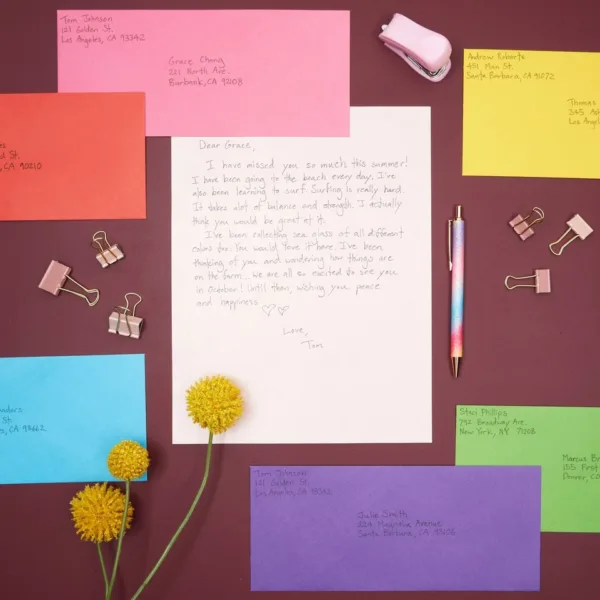 Tom Johnson
121 Golden St.
Los Angeles, CA 93342
Grace Chang
221 North Ave.
Burbank, CA 92108
Andrew Roberts
Main St.
Santa Barbara, CA 91072
Thomas
Los Angel
d St.
CA 90210
Dear Grace,
I have missed you so much this summer!
I have been going to the beach every day. I've
also been learning to surf. Surfing is really hard.
It takes alot of balance and strength. I actually
think you would be great at it.
I've been collecting sea glass of all different
colors too. You would love it here. I've been
thinking of you and wondering how things are
on the farm... We are all so excited to see you
in October! Until then, wishing you peace
and happiness
Love,
Tom
St.
Staci Phillips
792 Broadway Ave.
New York, NY 71208
Marcus Br
First
Denver, CO
Tom Johnson
121 Golden St.
Los Angeles, CA 93342
Julie Smith
334 Magnolia Avenue
Santa Barbara, CA